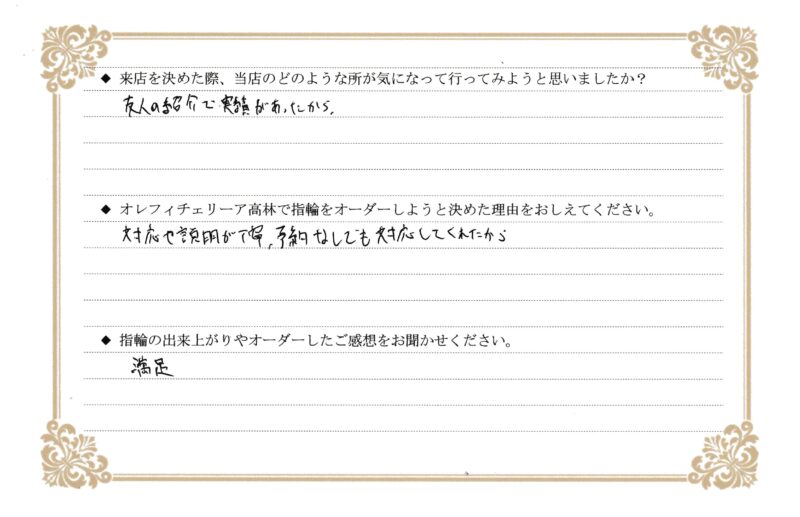 ◆ 来店を決めた際、当店のどのような所が気になって行ってみようと思いましたか？
友人の紹介で実績があったから。
◆ オレフィチェリーア高林で指輪をオーダーしようと決めた理由をおしえてください。
対応や説明が丁寧、予約なしでも対応してくれたから
◆ 指輪の出来上がりやオーダーしたご感想をお聞かせください。
満足